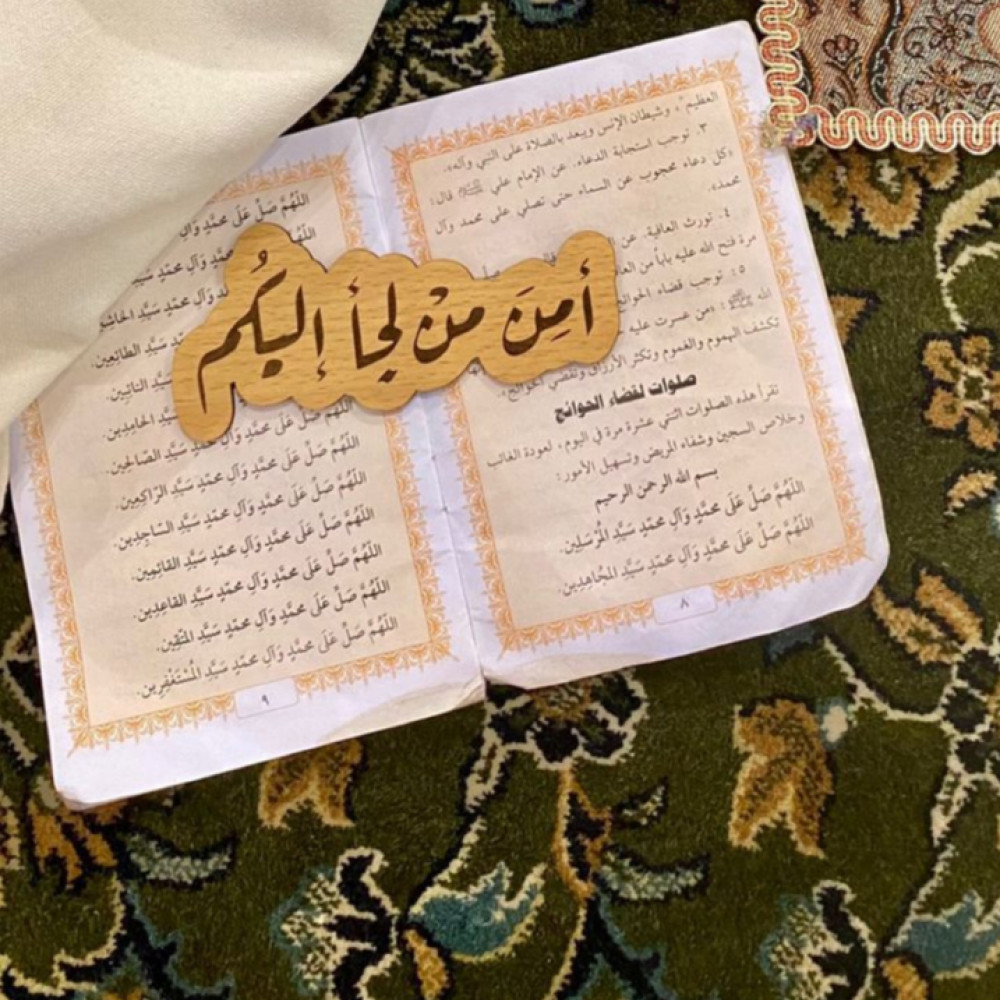 العظيم"، وشيطان الإنس ويبعد بالصلاة على النبي وآله».
٣. توجب استجابة الدعاء. عن الإمام علي قال:
«كل دعاء محجوب عن السماء حتى تصلي على محمد وآل
محمد».
٤. تورث العافية. عن
مرة فتح الله عليه باباً من العا
٥. توجب قضاء الحوائج
الله : «من عسرت عليه
تكشف الهموم والغموم وتكثر الأرزاق وتقضي الحوائج».
صلوات لقضاء الحوائج
تقرأ هذه الصلوات اثنتي عشرة مرة في اليوم، لعودة الغائب
وخلاص السجين وشفاء المريض وتسهيل الأمور:
بسم الله الرحمن الرحيم
اللّهُمَّ صَلِّ عَلَى محمَّدٍ وَآلِ محمّدٍ سَيِّدِ المُرْسَلِين.
اللّهُمَّ صَلِّ عَلَى محمَّدٍ وَآلِ محمّدٍ سَيِّدِ المُجَاهِدِين.
٨
أَمِنَ مَنْ لجأ إليكُم
اللّهُمَّ صَلِّ عَلَى محمَّدٍ وَآلِ
اللّهُ
محمَّدٍ وَآلِ محمّدٍ سَيِّدِ
وَآلِ محمّدٍ سَيِّدِ الخاشِعِين
سَيِّدِ الطائِعِين.
سَيِّدِ التائِبِين.
سَيِّدِ الحَامِدِين.
اللّهُمَّ محمّدٍ سَيِّدِ الصَالحِين.
اللّهُمَّ صَلِّ عَلَى محمَّدٍ وَآلِ محمّدٍ سَيِّدِ الرّاكِعِين.
اللّهُمَّ صَلِّ عَلَى محمَّدٍ وَآلِ محمّدٍ سَيِّدِ السَاجِدِين.
اللّهُمَّ صَلِّ عَلَى محمَّدٍ وَآلِ محمّدٍ سَيِّدِ القائِمِين.
اللّهُمَّ صَلِّ عَلَى محمَّدٍ وَآلِ محمّدٍ سَيِّدِ القاعِدِين.
اللّهُمَّ صَلِّ عَلَى محمَّدٍ وَآلِ محمّدٍ سَيِّدِ المتَّقِين.
اللّهُمَّ صَلِّ عَلَى محمَّدٍ وَآلِ محمّدٍ سَيِّدِ المُسْتَغْفِرِين.
٩